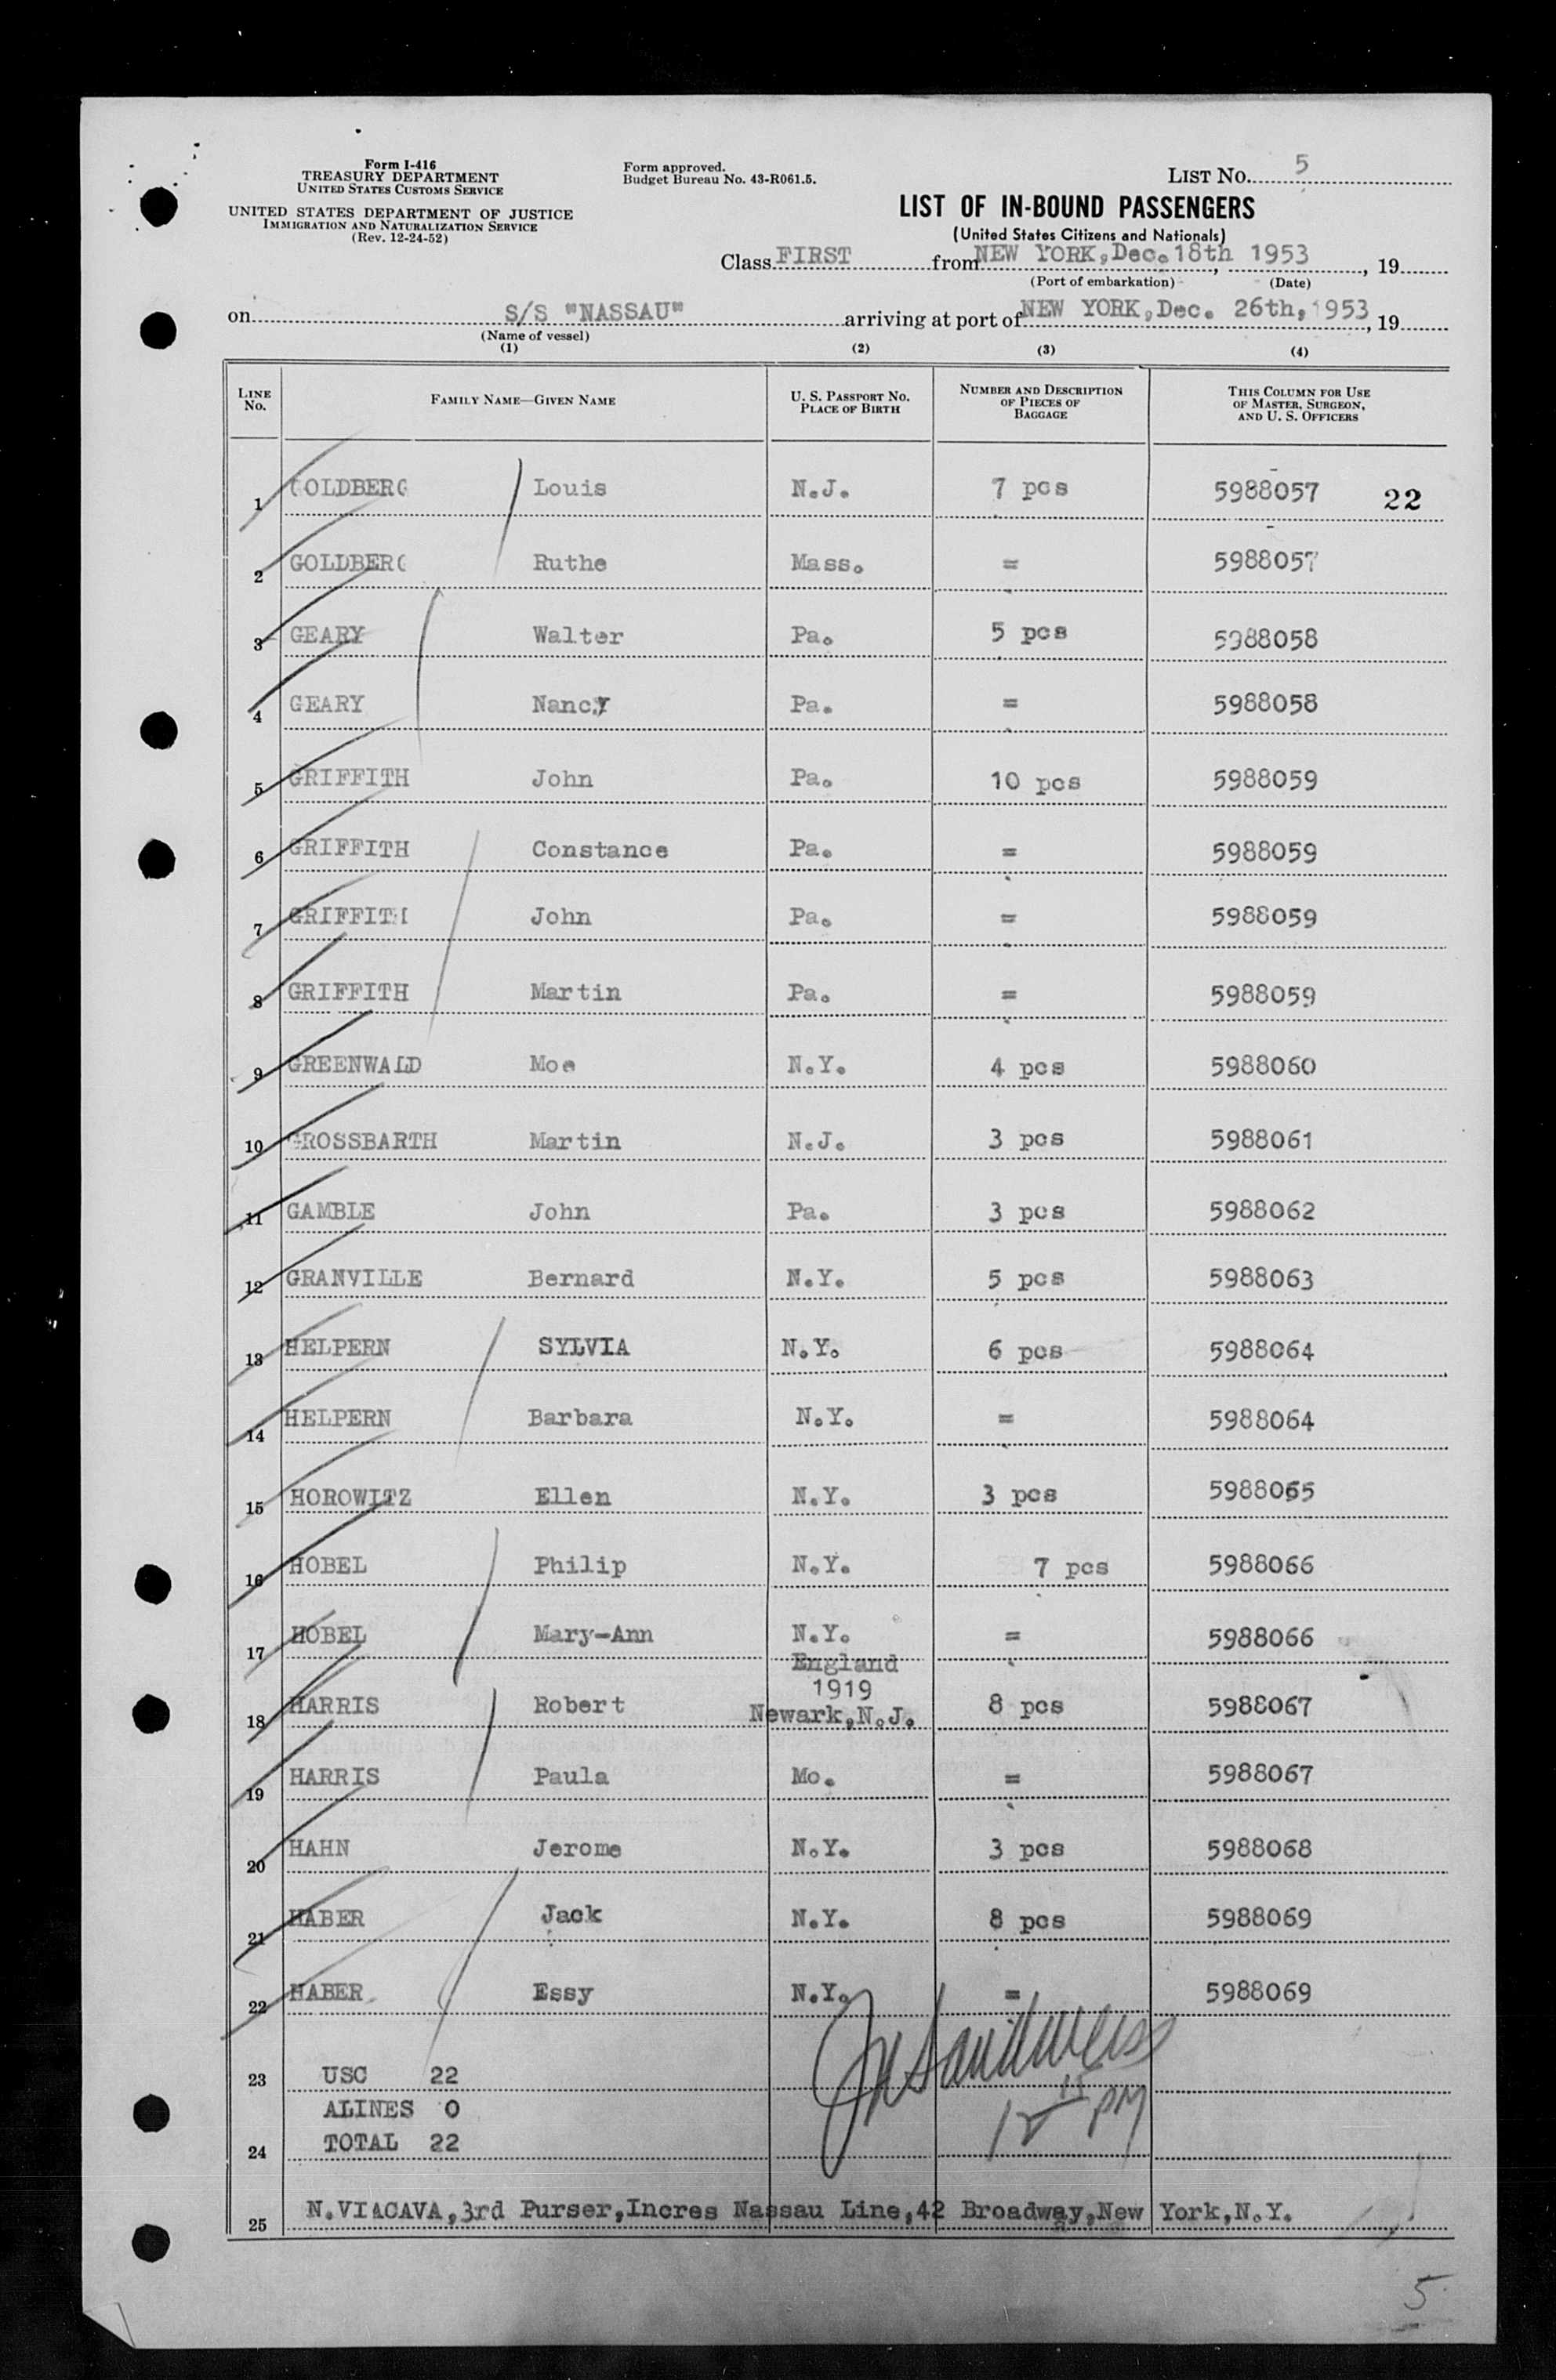 Form I-416
TREASURY DEPARTMENT
UNITED STATES CUSTOMS SERVICE
UNITED STATES DEPARTMENT OF JUSTICE
IMMIGRATION AND NATURALIZATION SERVICE
(Rev. 12-24-52)
Form approved.
Budget Bureau No. 43-R061.5.
LIST No. 5
LIST OF IN-BOUND PASSENGERS
(United States Citizens and Nationals)
Class FIRST from NEW YORK, Dec. 18th 1953, 19
(Port of embarkation) (Date)
on S/S "NASSAU" arriving at port of NEW YORK, Dec. 26th, 1953, 19
(Name of vessel)
(1) (2) (3) (4)
LINE No. FAMILY NAME—GIVEN NAME U. S. PASSPORT No. PLACE OF BIRTH NUMBER AND DESCRIPTION OF PIECES OF BAGGAGE THIS COLUMN FOR USE OF MASTER, SURGEON, AND U. S. OFFICERS
1 GOLDBERG Louis N.J. 7 pcs 5988057 22
2 GOLDBERG Ruthe Mass. = 5988057
3 GEARY Walter Pa. 5 pcs 5988058
4 GEARY Nancy Pa. = 5988058
5 GRIFFITH John Pa. 10 pcs 5988059
6 GRIFFITH Constance Pa. = 5988059
7 GRIFFITH John Pa. = 5988059
8 GRIFFITH Martin Pa. = 5988059
9 GREENWALD Moe N.Y. 4 pcs 5988060
10 GROSSBARTH Martin N.J. 3 pcs 5988061
11 GAMBLE John Pa. 3 pcs 5988062
12 GRANVILLE Bernard N.Y. 5 pcs 5988063
13 HELPERN SYLVIA N.Y. 6 pcs 5988064
14 HELPERN Barbara N.Y. = 5988064
15 HOROWITZ Ellen N.Y. 3 pcs 5988065
16 HOBEL Philip N.Y. 7 pcs 5988066
17 HOBEL Mary-Ann N.Y. = 5988066
England
1919
18 HARRIS Robert Newark, N.J. 8 pcs 5988067
19 HARRIS Paula Mo. = 5988067
20 HAHN Jerome N.Y. 3 pcs 5988068
21 HABER Jack N.Y. 8 pcs 5988069
22 HABER Essy N.Y. = 5988069
23 USC 22
ALINES 0
24 TOTAL 22
PM
25 N.VIACAVA, 3rd Purser, Incres Nassau Line, 42 Broadway, New York, N.Y.
5